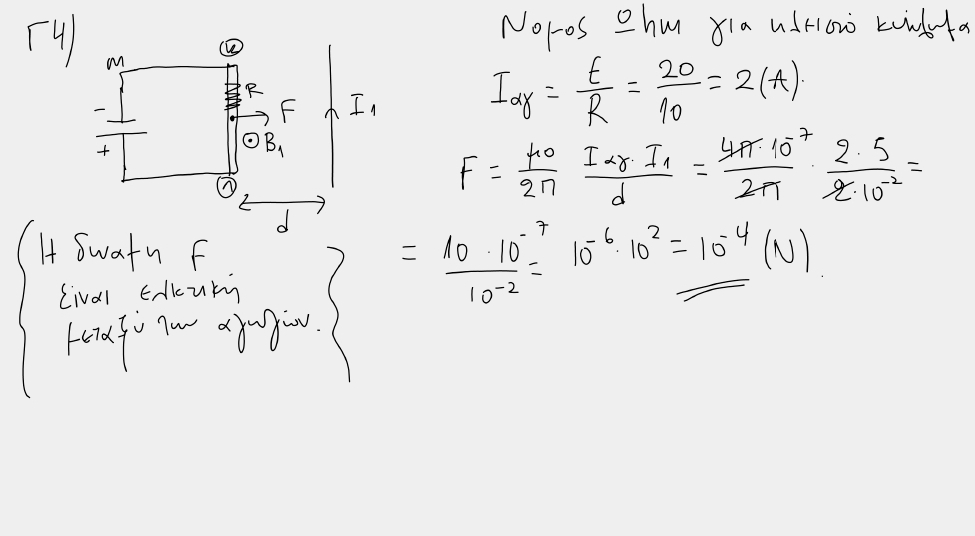 Γ4)
Νομος Ohm για κλειστό κύκλωμα
M
K
R
F
I₁
B₁
-
+
Λ
d
Iαγ = E/R = 20/10 = 2 (A).
F = μ0/2π Iαγ. I₁/d = 4π·10⁻⁷/2π · 2.5/2·10⁻² =
= 10·10⁻⁷/10⁻² = 10⁻⁶·10² = 10⁻⁴ (N).
Η δύναμη F
είναι ελκτική
μεταξύ των αγωγών.